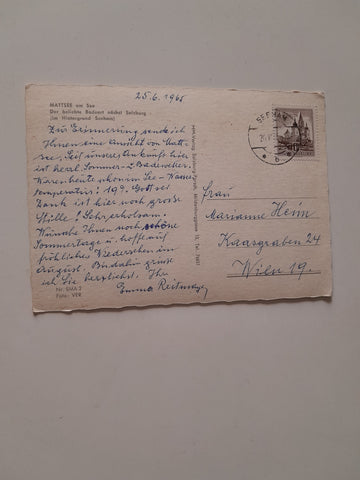 25. 6. 1965
MATTSEE am See
Der beliebte Badeort nächst Salzburg
(im Hintergrund Seeham)
Zur Erinnerung sende ich
Ihnen eine Ansicht von Matt-
see. Seit unserer Ankunft hier
ist herrl. Sommer- u. Badewetter.
Waren heute schon im See - Wasser
temperatur! 19°. Gott sei
Dank ist hier noch große
Stille! Sehr erholsam.
Wünsche Ihnen noch schöne
Sommertage u. hoffe auf
fröhliches Wiedersehen im
August. Bis dahin grüße
ich Sie herzlichst. Ihre
Emma Reitmayer
Nr. SMA 2
Foto: VER
SEEHAM
Frau
Marianne Heim
Kaasgraben 24
Wien 19.